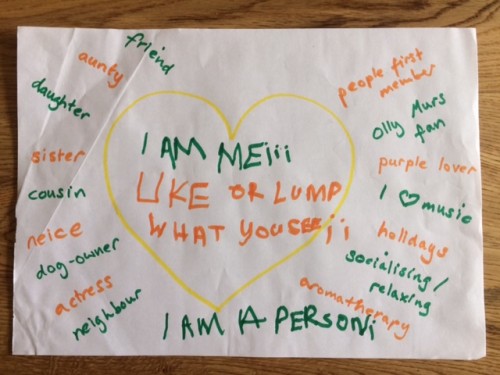 friend
aunty
daughter
sister
cousin
neice
dog-owner
actress
neighbour
I AM ME!!!
LIKE OR LUMP
WHAT YOU SEE!!
I AM A PERSON!
people first
member
Olly Murs
fan
purple lover
I ♡ music
holidays
socialising/
relaxing
aromatherapy